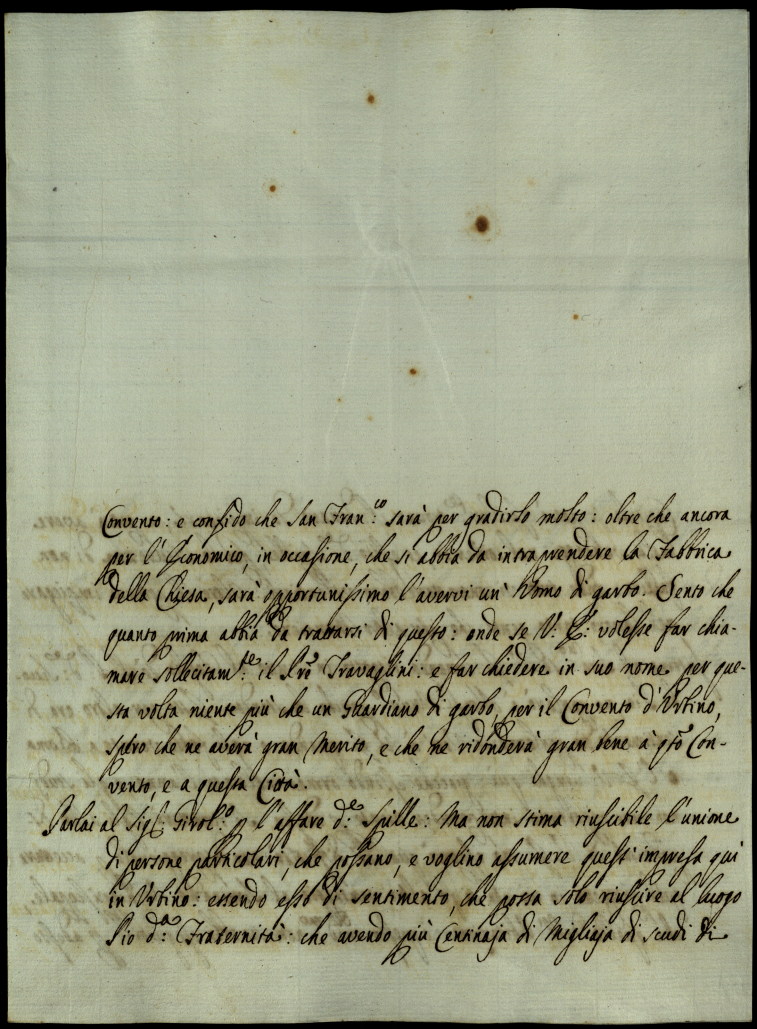 Convento: e confido che San Fran.co sarà per gradirlo molto: oltre che ancora
per l'Economico, in occasione, che si abbia da intraprendere la Fabbrica
della Chiesa, sarà opportunissimo l'avervi un' Homo di garbo. Sento che
quanto prima abbia da trattarsi di questo: onde se V. E: volesse far chia-
mare sollecitam.te il Pre Travaglini: e far chiedere in suo nome per que-
sta volta niente più che un Guardiano di garbo, per il Convento d'Urbino,
spero che ne averà gran Merito, e che ne ridonderà gran bene à qsto Con-
vento, e a questa Città.
Parlai al Sig.r Girol.o p l'affare d.e Spille: Ma non stima riuscibile l'unione
di persone particolari, che possano, e voglino assumere quest' impresa quì
in Urbino: essendo esso di sentimento, che possa solo riuscire al luogo
Pio d.a Fraternità: che avendo più Centinaja di Migliaja di scudi di